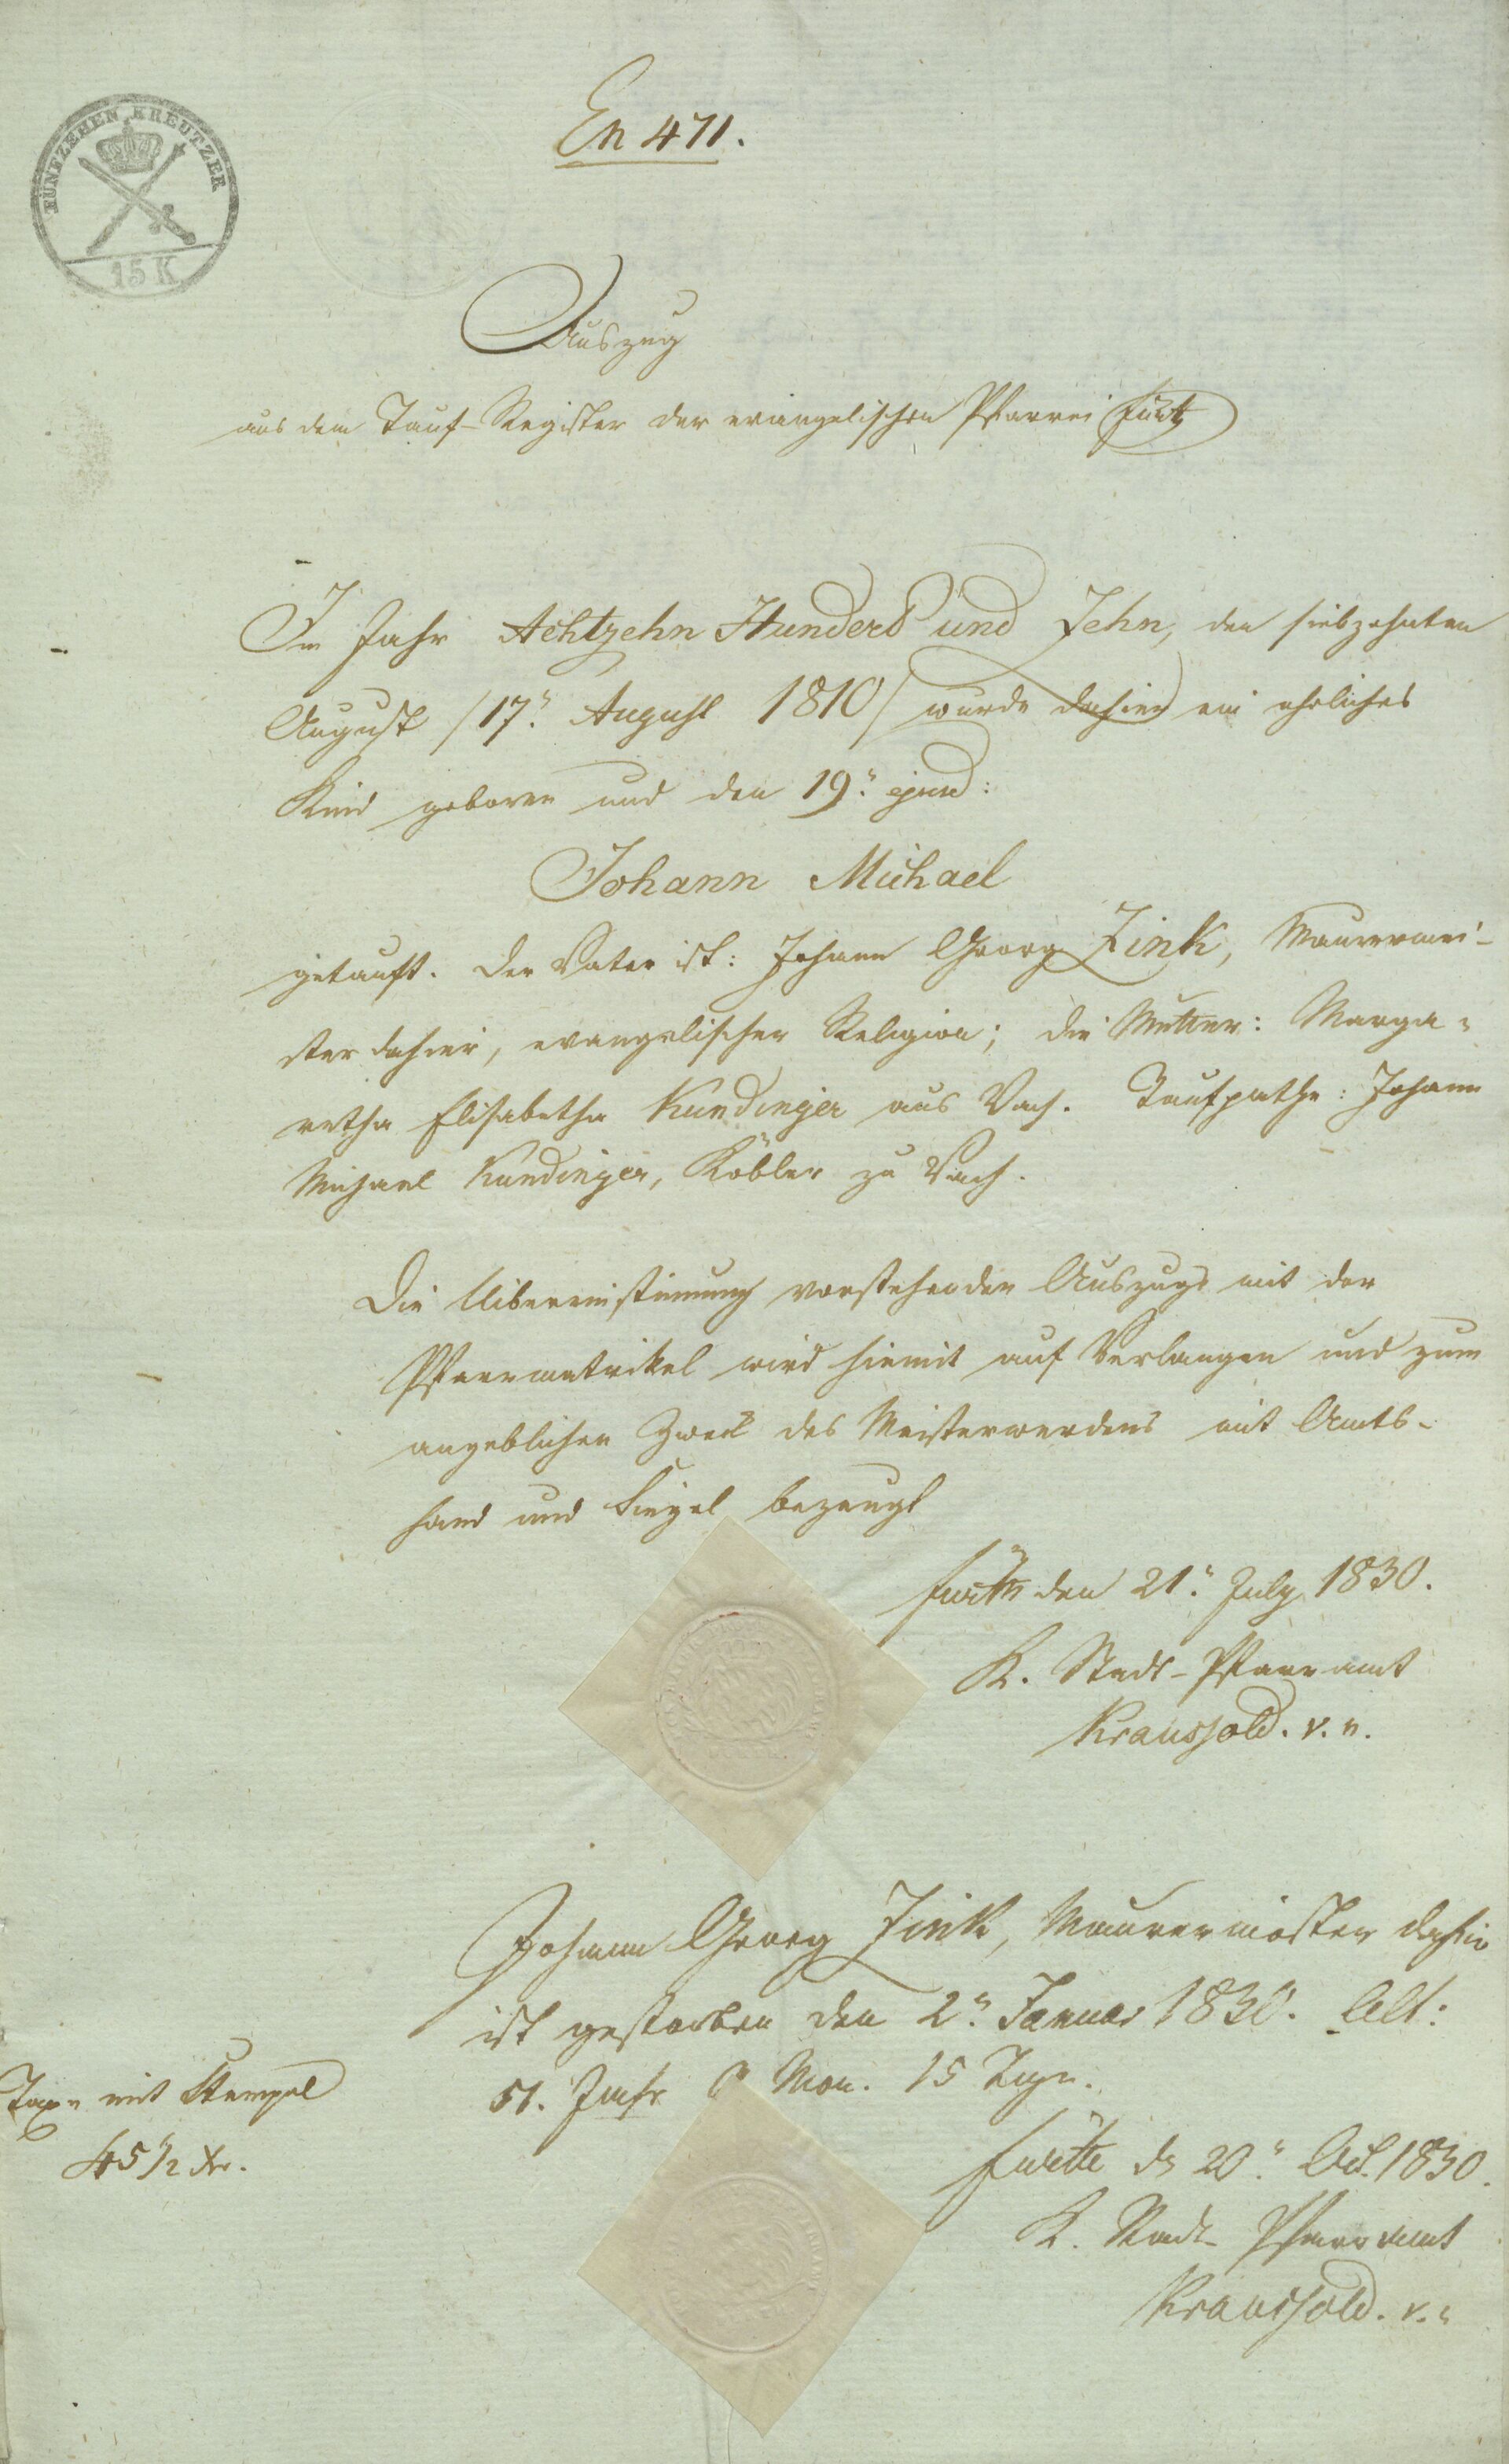 FÜNFZEHEN KREUTZER
15 K
En 471.
Auszug
aus dem Tauf-Register der evangelischen Pfarrei Fürth
Im Jahr Achtzehn Hundert und Zehn, den siebzehnten
August /17.n August 1810/ wurde dahier ein ehliches
Kind geboren und den 19.n ejusd:
Johann Michael
getauft. Der Vater ist: Johann Georg Zink, Maurermei-
ster dahier, evangelischer Religion; die Mutter: Marga=
retha Elisabetha Kundinger aus Vach. Taufpathe: Johann
Michael Kundinger, Köbler zu Vach.
Die Uibereinstimmung vorstehenden Auszugs mit der
Pfarrmatrikel wird hiemit auf Verlangen und zum
angeblichen Zweck des Meisterwerdens mit Amts-
hand und Siegel bezeugt
Fürth den 21.n July 1830.
K. Stadt-Pfarramt
Kraussold. v. n.
Johann Georg Zink, Maurermeister dahier
ist gestorben den 2.n Januar 1830. Alt:
51. Jahr Mon. 15 Tage.
Taxe mit Stempel
45 1/2 xr.
Fürth d. 20.n Oct. 1830.
K. Stadt-Pfarramt
Kraussold. v.